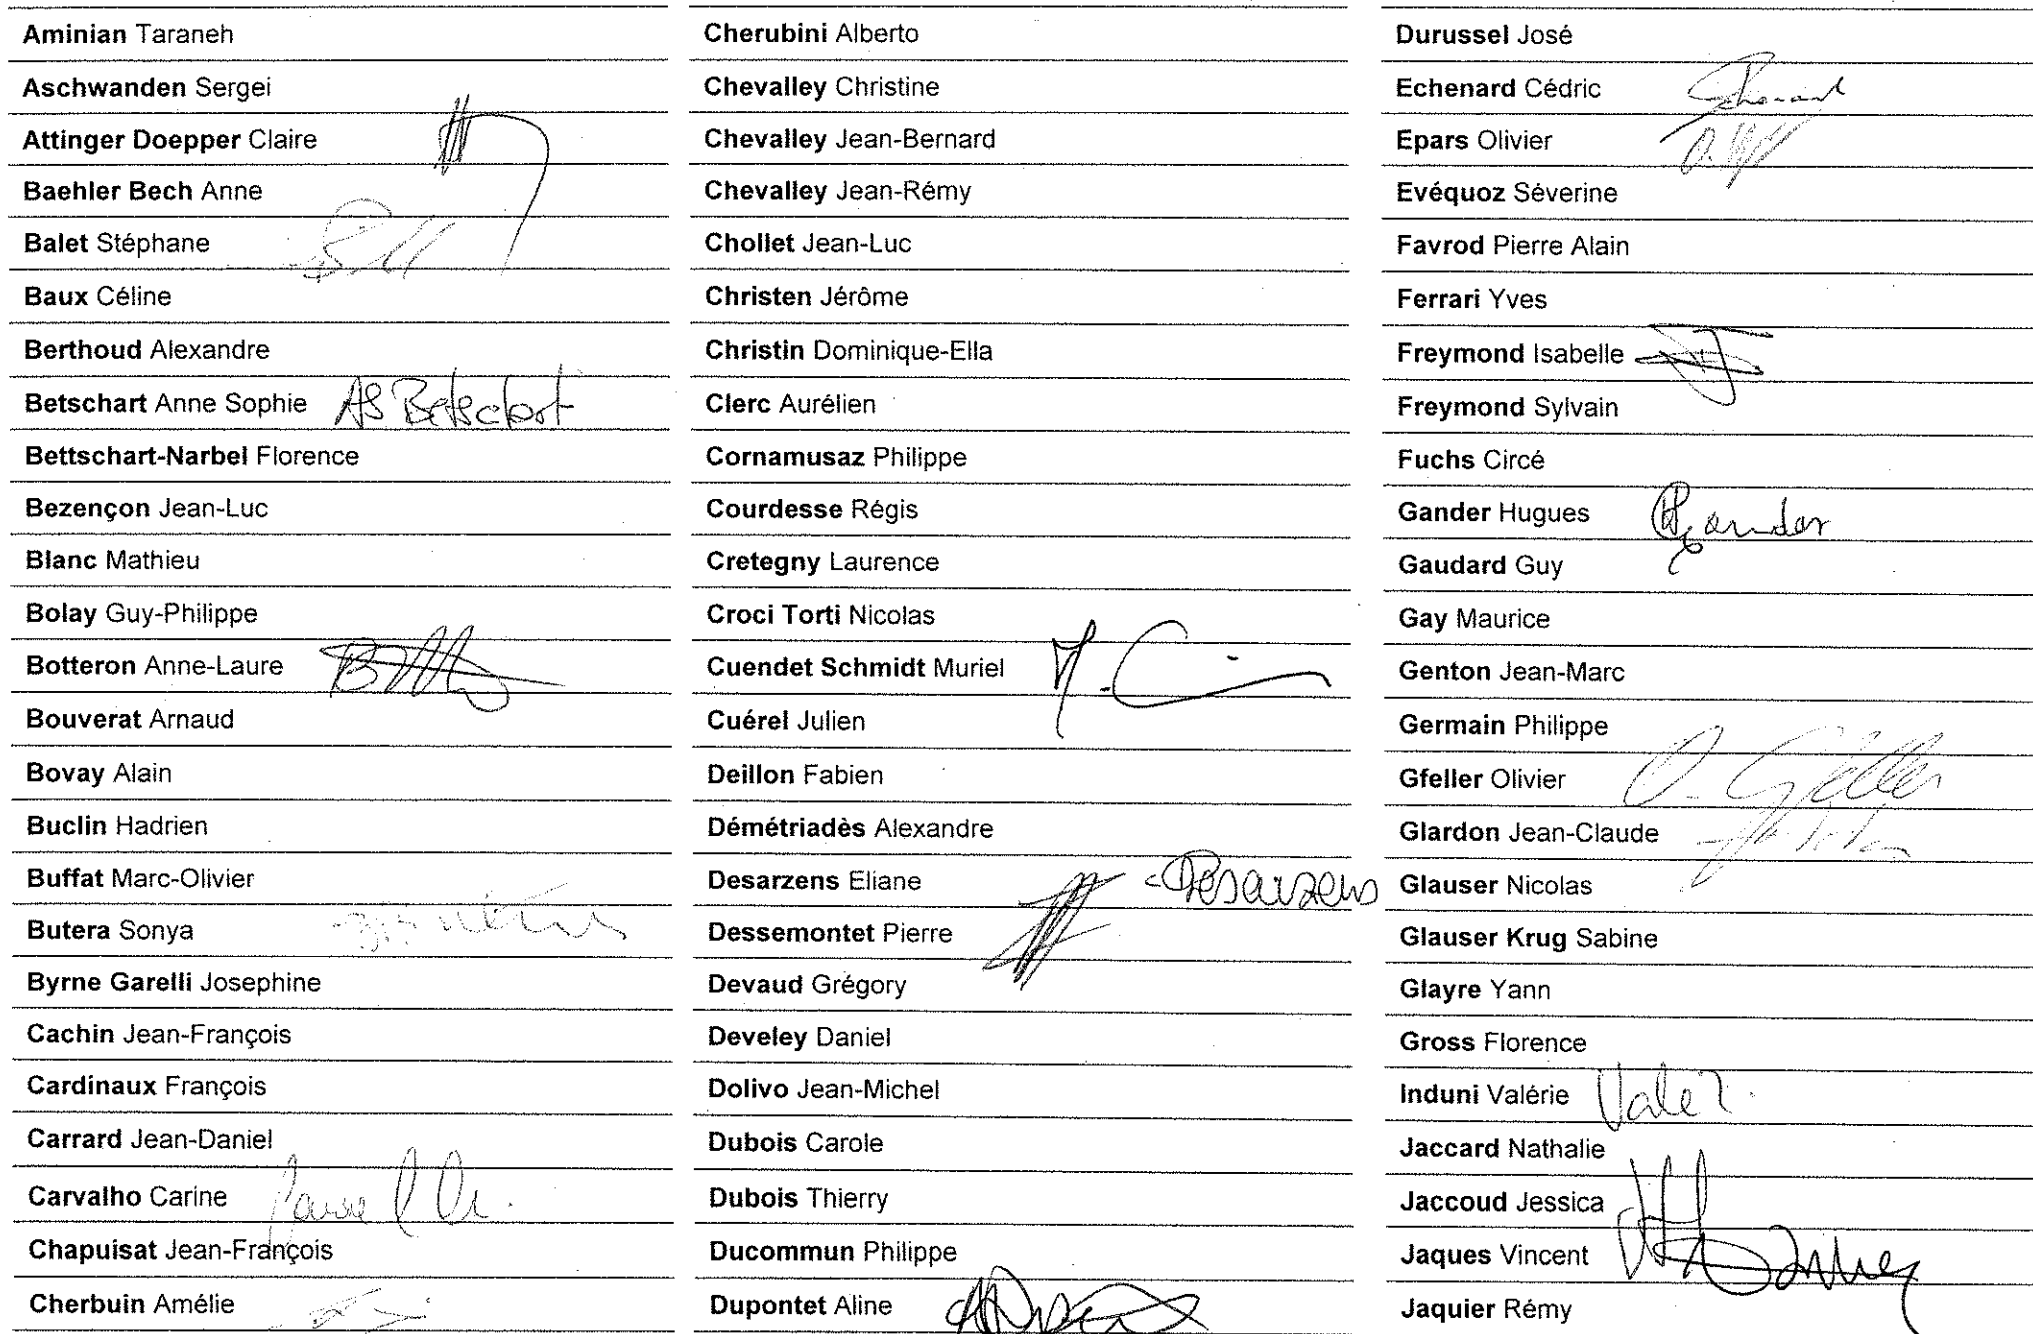 Aminian Taraneh
Aschwanden Sergei
Attinger Doepper Claire
Baehler Bech Anne
Balet Stéphane
Baux Céline
Berthoud Alexandre
Betschart Anne Sophie AS Betschart
Bettschart-Narbel Florence
Bezençon Jean-Luc
Blanc Mathieu
Bolay Guy-Philippe
Botteron Anne-Laure
Bouverat Arnaud
Bovay Alain
Buclin Hadrien
Buffat Marc-Olivier
Butera Sonya
Byrne Garelli Josephine
Cachin Jean-François
Cardinaux François
Carrard Jean-Daniel
Carvalho Carine
Chapuisat Jean-François
Cherbuin Amélie
Cherubini Alberto
Chevalley Christine
Chevalley Jean-Bernard
Chevalley Jean-Rémy
Chollet Jean-Luc
Christen Jérôme
Christin Dominique-Ella
Clerc Aurélien
Cornamusaz Philippe
Courdesse Régis
Cretegny Laurence
Croci Torti Nicolas
Cuendet Schmidt Muriel
Cuérel Julien
Deillon Fabien
Démétriadès Alexandre
Desarzens Eliane Desarzens
Dessemontet Pierre
Devaud Grégory
Develey Daniel
Dolivo Jean-Michel
Dubois Carole
Dubois Thierry
Ducommun Philippe
Dupontet Aline
Durussel José
Echenard Cédric
Epars Olivier
Evéquoz Séverine
Favrod Pierre Alain
Ferrari Yves
Freymond Isabelle
Freymond Sylvain
Fuchs Circé
Gander Hugues HGander
Gaudard Guy
Gay Maurice
Genton Jean-Marc
Germain Philippe
Gfeller Olivier O. Gfeller
Glardon Jean-Claude
Glauser Nicolas
Glauser Krug Sabine
Glayre Yann
Gross Florence
Induni Valérie
Jaccard Nathalie
Jaccoud Jessica
Jaques Vincent
Jaquier Rémy